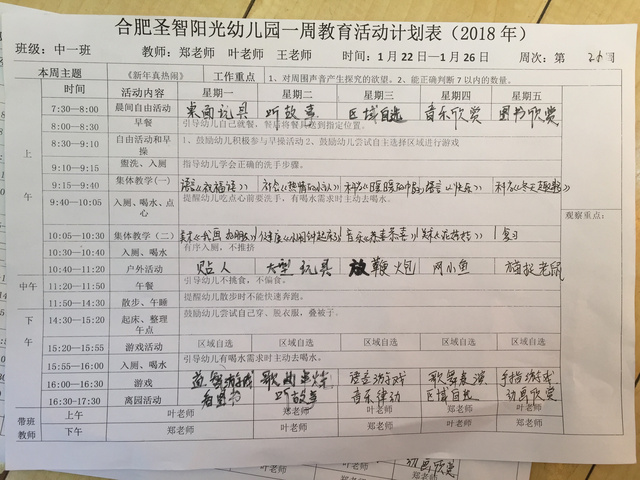 合肥圣智阳光幼儿园一周教育活动计划表（2018 年）
班级：中一班 教师：郑老师 叶老师 王老师 时间：1 月 22—1 月 26 日 周次：第 26 周
本周主题 《新年真热闹》 工作重点 1、对周围声音产生探究的欲望。2、能正确判断 7 以内的数量。
时间 活动内容 星期一 星期二 星期三 星期四 星期五
上午 7:30—8:00 晨间自由活动 桌面玩具 听故事 区域自选 音乐欣赏 图书欣赏
8:00—8:30 早餐 引导幼儿自己就餐，餐后将餐具送到指定位置。
8:30—9:10 自由活动和早操 1、鼓励幼儿积极参与早操活动 2、鼓励幼儿尝试自主选择区域进行游戏
9:10—9:15 盥洗、入厕 指导幼儿学会正确的洗手步骤。
9:15—9:40 集体教学（一） 语言《祝福语》 社会 科学 语言《快乐》 科学
9:40—10:05 入厕、喝水、点心 提醒幼儿吃点心前要洗手，有喝水需求时主动去喝水。
观察重点：
10:05—10:30 集体教学（二） 美术 音乐《恭喜恭喜》 复习
10:30—10:40 入厕、喝水 有序入厕，不推挤
10:40—11:20 户外活动 贴人 大型玩具 放鞭炮 网小鱼 猫捉老鼠
中午 11:20—11:50 午餐 引导幼儿不挑食，不偏食。
11:50—14:30 散步、午睡 提醒幼儿散步时不能快速奔跑。
下午 14:30—15:20 起床、整理 午点 鼓励幼儿尝试自己穿、脱衣服，叠被子。
15:20—15:55 游戏活动 区域自选 区域自选 区域自选 区域自选 区域自选
15:55—16:00 入厕、喝水 引导幼儿有喝水需求时主动去喝水。
16:00—16:30 游戏 益智游戏 歌曲 语言游戏 歌舞表演 手指游戏
16:30—17:30 离园活动 看图书 听故事 音乐律动 区域自选 动画欣赏
带班教师 上午 叶老师 郑老师 叶老师 郑老师 叶老师
下午 郑老师 叶老师 郑老师 叶老师 郑老师
动画欣赏